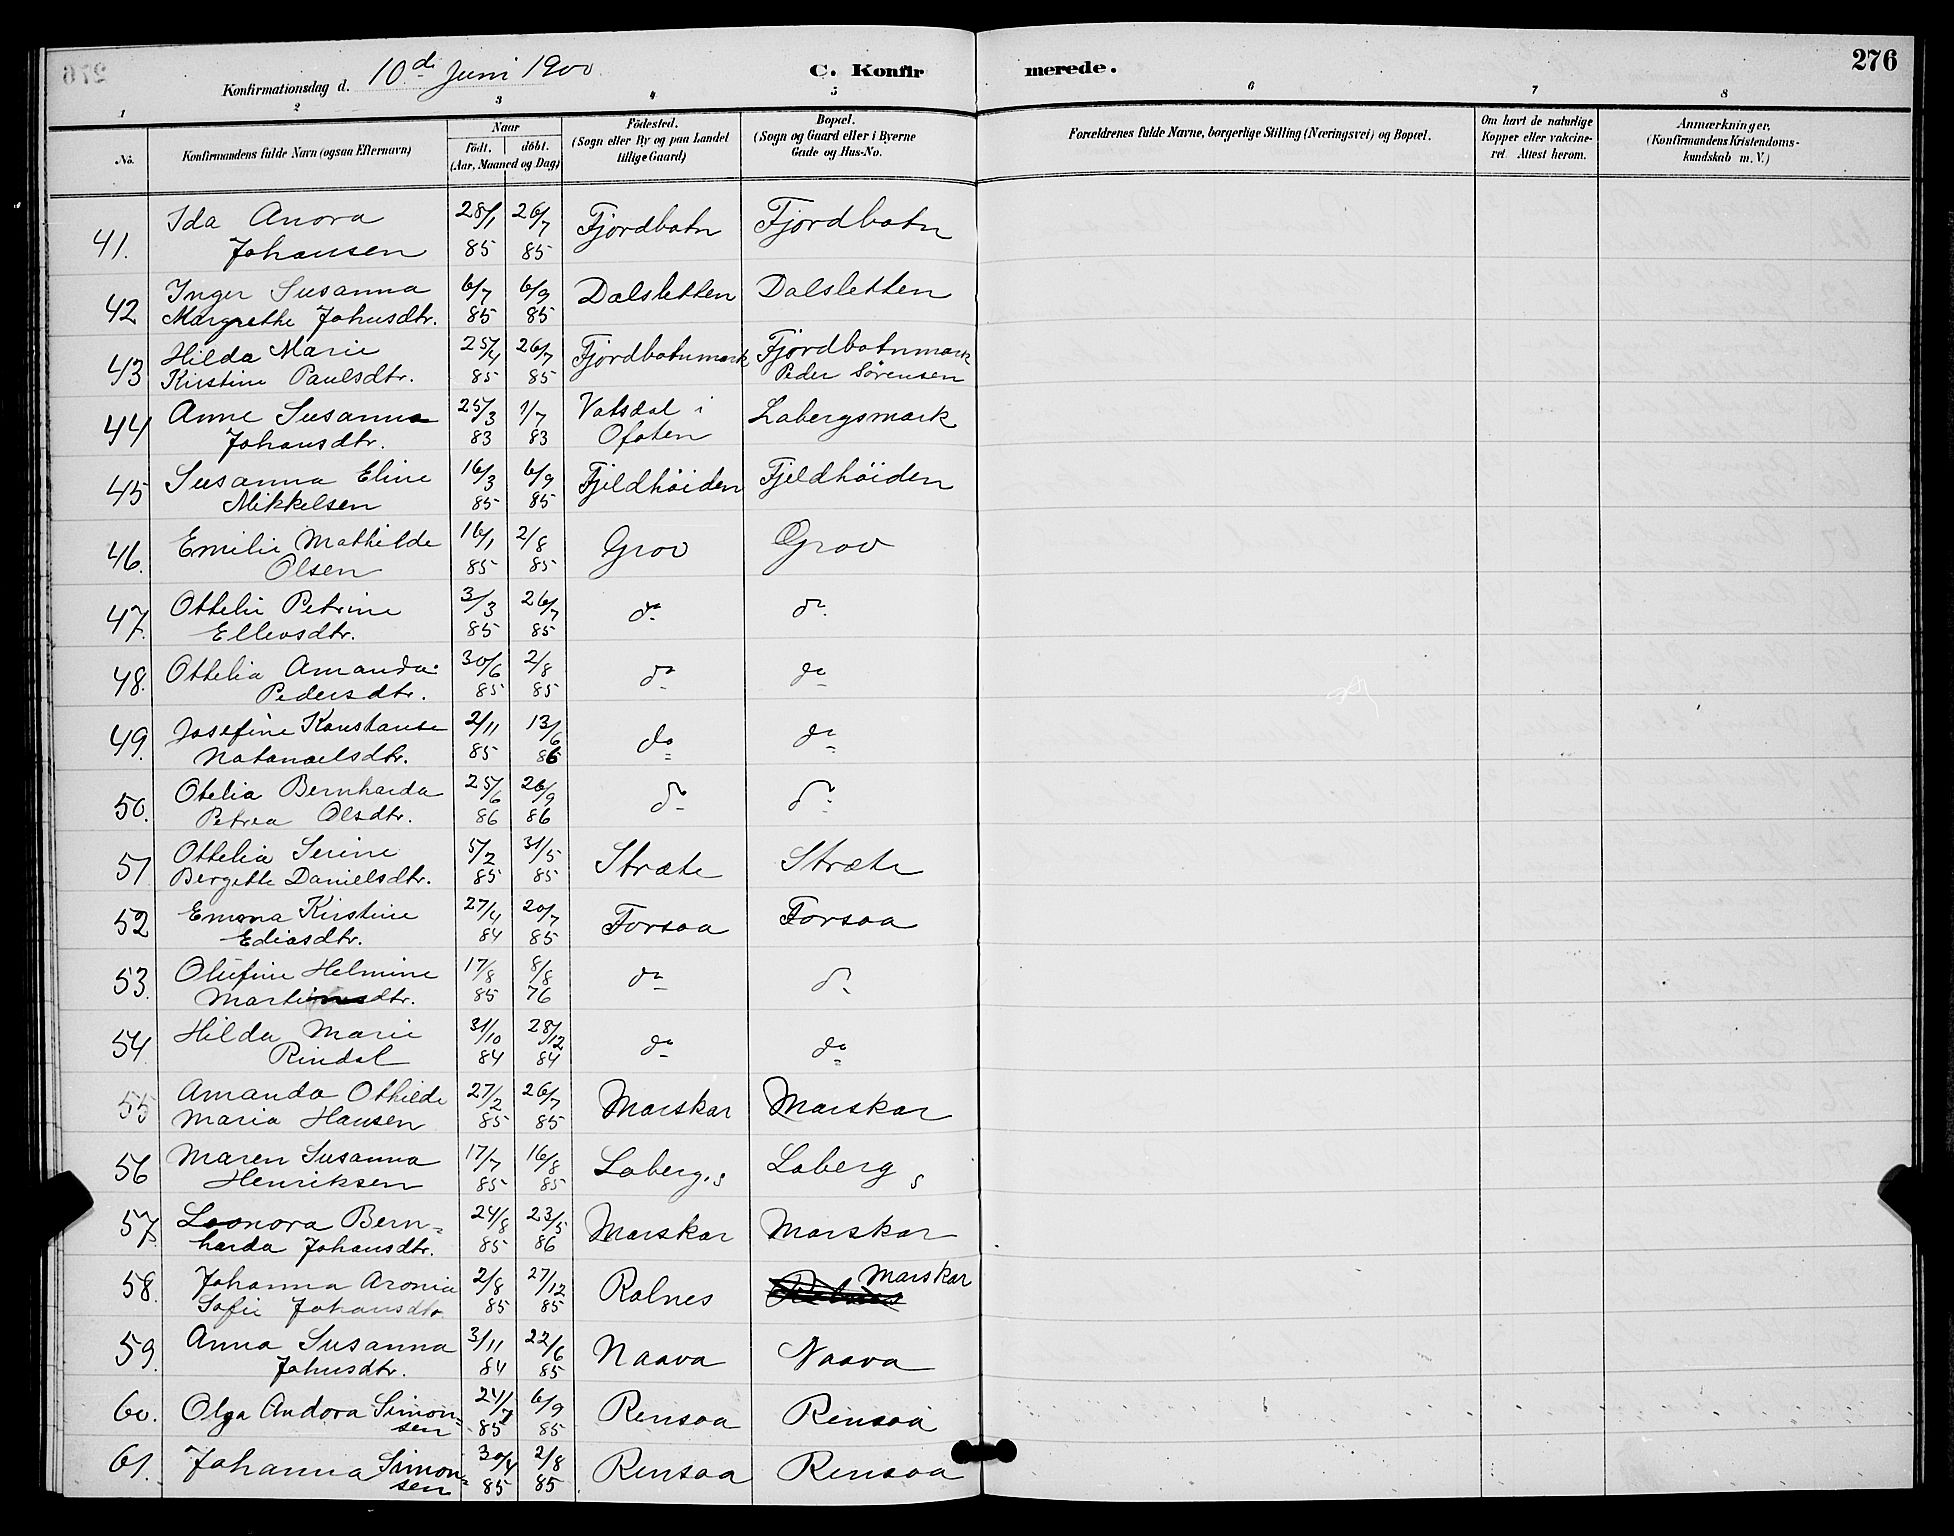 276
Konfirmationsdag d. 10de Juni 1900
C. Konfir merede.
1 2 3 4 5 6 7 8
No.
Konfirmandens fulde Navn (ogsaa Efternavn)
Naar
født. døbt.
(Aar, Maaned og Dag)
Fødested.
(Sogn eller By og paa Landet
tillige Gaard)
Bopæl.
(Sogn og Gaard eller i Byerne
Gade og Hus-No.
Forældrenes fulde Navne, borgerlige Stilling (Næringsvei) og Bopæl.
Om havt de naturlige
Kopper eller vakcine-
ret. Attest herom.
Anmærkninger.
(Konfirmandens Kristendoms-
kundskab m. V.)
Ida Anora 28/1 26/7 Fjordbotn Fjordbotn
41. Johansen 85 85
Inger Susanna 6/7 6/9 Dalsletten Dalsletten
42 Margrethe Johnsdtr. 85 85
Hilda Marie 25/4 26/7 Fjordbotnmark Fjordbotnmark
43 Kirstine Paulsdtr. 85 85 Peder Sörensen
Anne Susanna 25/3 1/7 Vatsdal i Labergsmark
44 Johansdtr. 83 83 Ofoten
Susanna Eline 16/3 6/9 Fjeldhöiden Fjeldhöiden
45 Mikkelsen 85 85
Emilie Mathilde 16/1 2/8 Grov Grov
46. Olsen 85 85
Ottelie Petrine 3/3 26/7 do do
47. Ellevsdtr. 85 85
Ottelia Amanda 30/6 2/8 do do
48. Pedersdtr. 85 85
Josefine Konstanse 2/11 13/6 do do
49. Natanaelsdtr. 85 86
Otelia Bernharda 25/6 26/9 do do
50. Petrea Olsdtr. 86 86
Ottelia Serine 5/2 31/5 Stræte Stræte
51 Bergette Danielsdtr. 85 85
Emma Kirstine 27/4 20/7 Forsaa Forsaa
52 Ediasdtr. 84 85
Olufine Helmine 17/8 8/8 do do
53. Martinsdtr. 85 76
Hilda Marie 31/10 28/12 do do
54. Rindal 84 84
Amanda Othilde 27/2 26/7 Marskar Marskar
55 Maria Hansen 85 85
Maren Susanna 17/7 16/8 Laberg.s Laberg s
56 Henriksen 85 85
Leonora Bern- 24/8 23/5 Marskar Marskar
57. harda Johansdtr. 85 86
Johanna Aronia 2/8 27/12 Rolnes Marskar
58. Sofie Johansdtr. 85 85
Anna Susanna 3/11 22/6 Naava Naava
59. Johnsdtr. 84 85
60. Olga Andora Simon- 24/7 6/9 Rensaa Rensaa
sen 85 85
61. Johanna Simon- 30/4 2/8 Rensaa Rensaa
sen 85 85